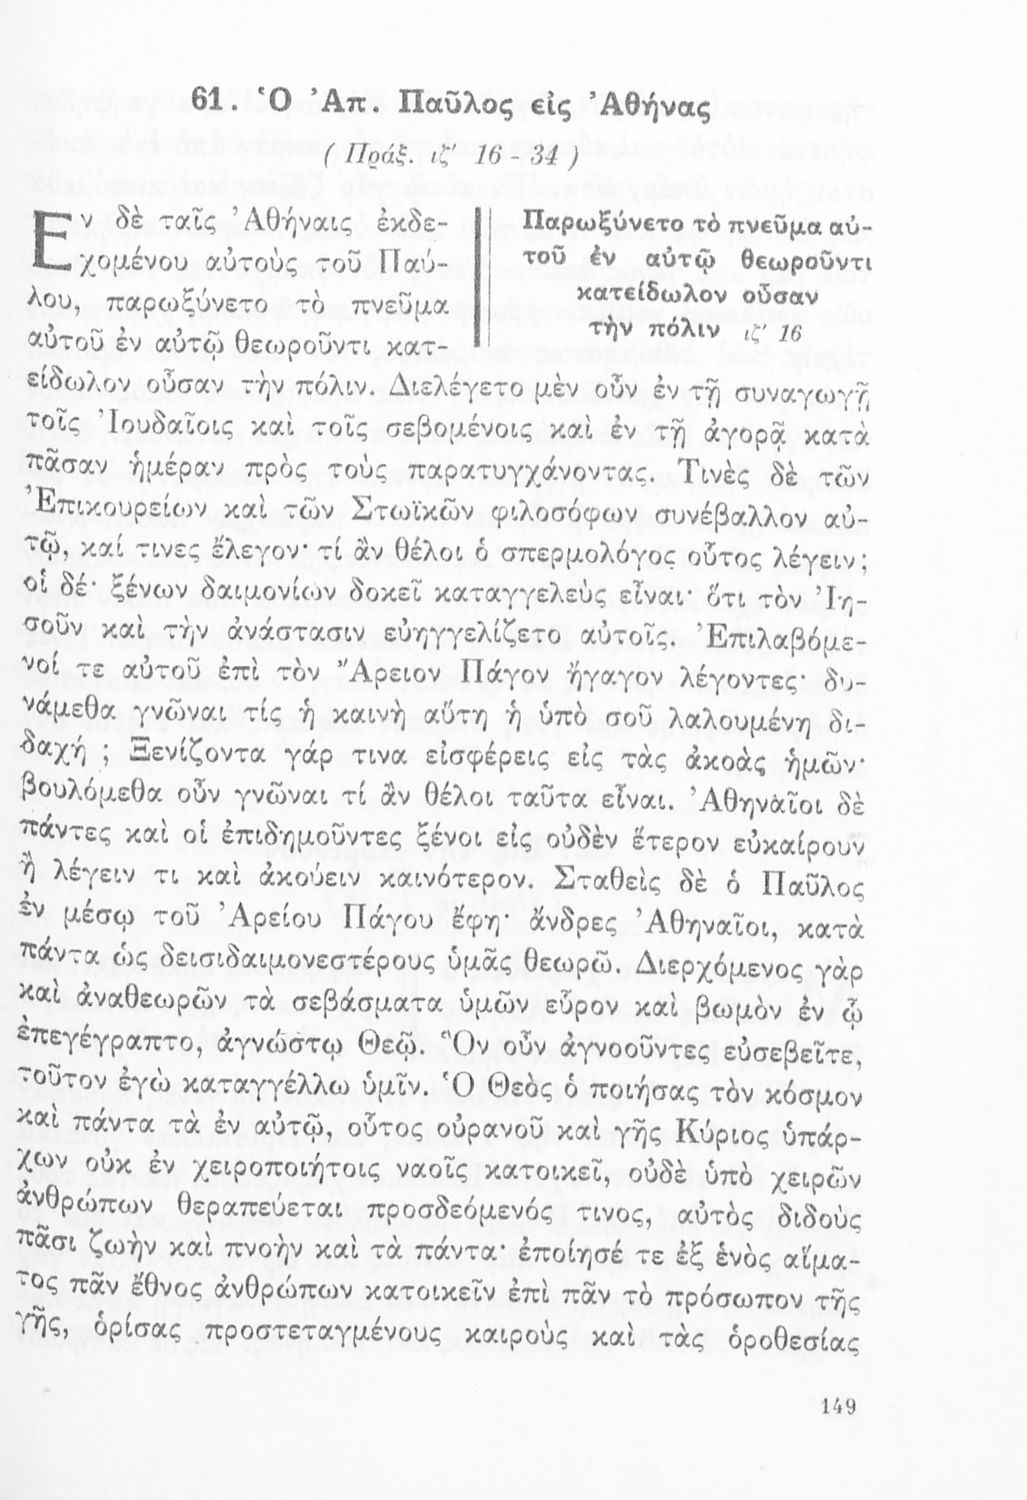 61. Ὁ Ἀπ. Παῦλος εἰς Ἀθήνας
( Πράξ. ιζ' 16 - 34 )
Ἐν δὲ ταῖς Ἀθήναις ἐκδε-
χομένου αὐτοὺς τοῦ Παύ-
λου, παρωξύνετο τὸ πνεῦμα
αὐτοῦ ἐν αὐτῷ θεωροῦντι κατ-
Παρωξύνετο τὸ πνεῦμα αὐ-
τοῦ ἐν αὐτῷ θεωροῦντι
κατείδωλον οὖσαν
τὴν πόλιν ιζ' 16
είδωλον οὖσαν τὴν πόλιν. Διελέγετο μὲν οὖν ἐν τῇ συναγωγῇ
τοῖς Ἰουδαῖοις καὶ τοῖς σεβομένοις καὶ ἐν τῇ ἀγορᾷ κατὰ
πᾶσαν ἡμέραν πρὸς τοὺς παρατυγχάνοντας. Τινὲς δὲ τῶν
Ἐπικουρείων καὶ τῶν Στωϊκῶν φιλοσόφων συνέβαλλον αὐ-
τῷ, καί τινες ἔλεγον· τί ἂν θέλοι ὁ σπερμολόγος οὗτος λέγειν;
οἱ δέ· ξένων δαιμονίων δοκεῖ καταγγελεὺς εἶναι· ὅτι τὸν Ἰη-
σοῦν καὶ τὴν ἀνάστασιν εὐηγγελίζετο αὐτοῖς. Ἐπιλαβόμε-
νοί τε αὐτοῦ ἐπὶ τὸν Ἄρειον Πάγον ἤγαγον λέγοντες· δυ-
νάμεθα γνῶναι τίς ἡ καινὴ αὕτη ἡ ὑπὸ σοῦ λαλουμένη δι-
δαχή ; Ξενίζοντα γάρ τινα εἰσφέρεις εἰς τὰς ἀκοὰς ἡμῶν·
βουλόμεθα οὖν γνῶναι τί ἂν θέλοι ταῦτα εἶναι. Ἀθηναῖοι δὲ
πάντες καὶ οἱ ἐπιδημοῦντες ξένοι εἰς οὐδὲν ἕτερον εὐκαίρουν
ἢ λέγειν τι καὶ ἀκούειν καινότερον. Σταθεὶς δὲ ὁ Παῦλος
ἐν μέσῳ τοῦ Ἀρείου Πάγου ἔφη· ἄνδρες Ἀθηναῖοι, κατὰ
πάντα ὡς δεισιδαιμονεστέρους ὑμᾶς θεωρῶ. Διερχόμενος γὰρ
καὶ ἀναθεωρῶν τὰ σεβάσματα ὑμῶν εὗρον καὶ βωμὸν ἐν ᾧ
ἐπεγέγραπτο, ἀγνώστῳ Θεῷ. Ὃν οὖν ἀγνοοῦντες εὐσεβεῖτε,
τοῦτον ἐγὼ καταγγέλλω ὑμῖν. Ὁ Θεὸς ὁ ποιήσας τὸν κόσμον
καὶ πάντα τὰ ἐν αὐτῷ, οὗτος οὐρανοῦ καὶ γῆς Κύριος ὑπάρ-
χων οὐκ ἐν χειροποιήτοις ναοῖς κατοικεῖ, οὐδὲ ὑπὸ χειρῶν
ἀνθρώπων θεραπεύεται προσδεόμενός τινος, αὐτὸς διδοὺς
πᾶσι ζωὴν καὶ πνοὴν καὶ τὰ πάντα· ἐποίησέ τε ἐξ ἑνὸς αἵμα-
τος πᾶν ἔθνος ἀνθρώπων κατοικεῖν ἐπὶ πᾶν τὸ πρόσωπον τῆς
γῆς, ὁρίσας προστεταγμένους καιροὺς καὶ τὰς ὁροθεσίας
149